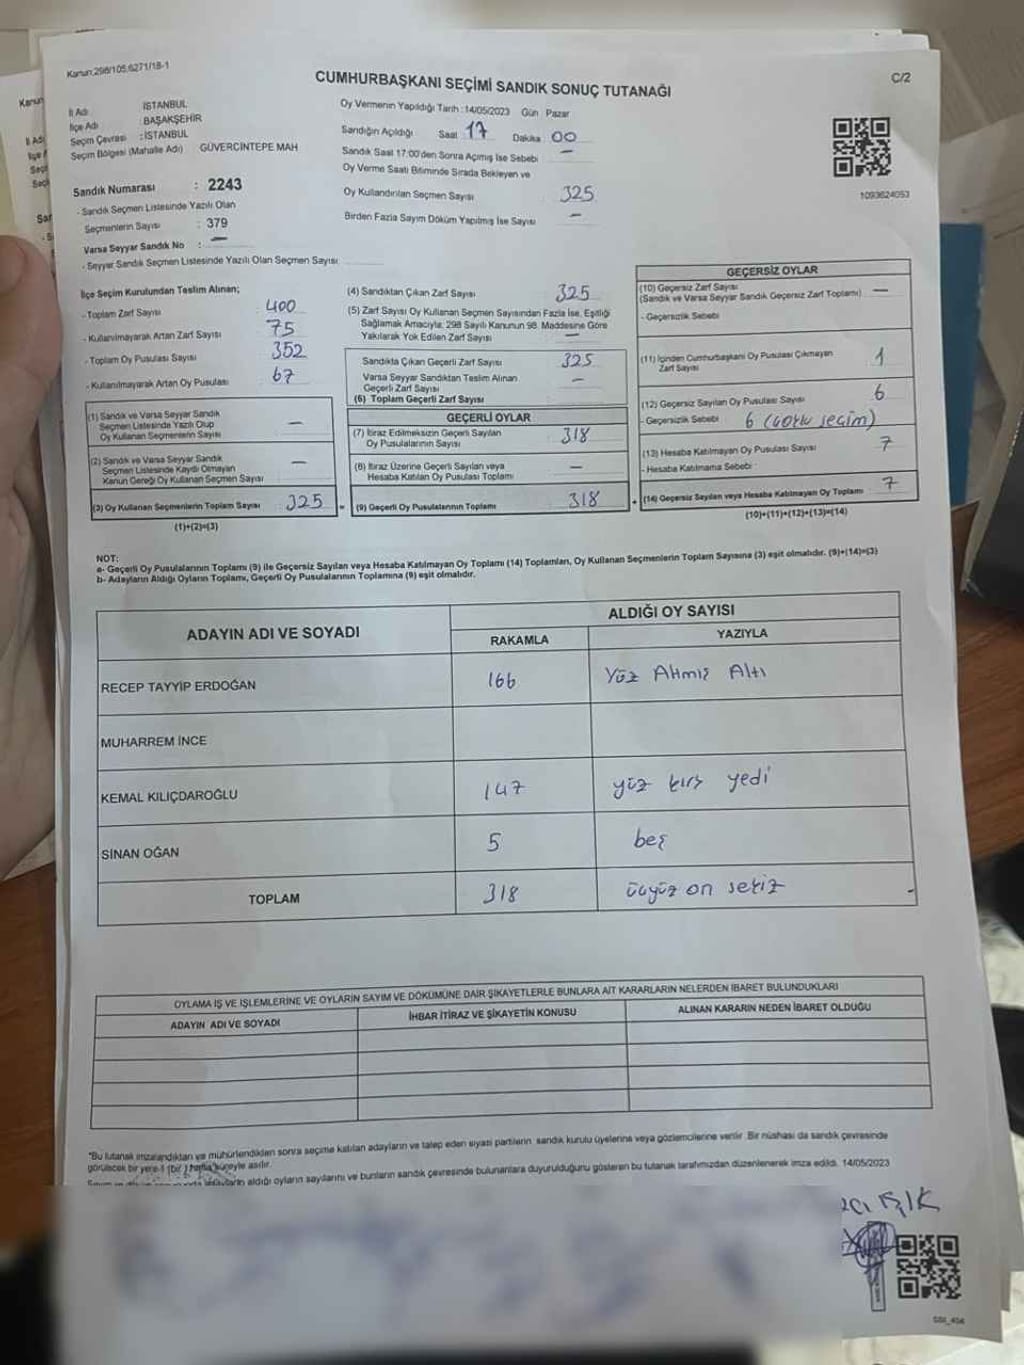 Kanun;298/105,6271/18-1
CUMHURBAŞKANI SEÇİMİ SANDIK SONUÇ TUTANAĞI
C/2
İl Adı : İSTANBUL
İlçe Adı : BAŞAKŞEHİR
Seçim Çevresi : İSTANBUL
Seçim Bölgesi (Mahalle Adı) GÜVERCİNTEPE MAH
Sandık Numarası : 2243
- Sandık Seçmen Listesinde Yazılı Olan
Seçmenlerin Sayısı : 379
Varsa Seyyar Sandık No : —
- Seyyar Sandık Seçmen Listesinde Yazılı Olan Seçmen Sayısı:
Oy Vermenin Yapıldığı Tarih :14/05/2023 Gün Pazar
Sandığın Açıldığı Saat 17 Dakika 00
Sandık Saat 17:00'den Sonra Açmış İse Sebebi —
Oy Verme Saati Bitiminde Sırada Bekleyen ve
Oy Kullandırılan Seçmen Sayısı 325
Birden Fazla Sayım Döküm Yapılmış İse Sayısı —
1093624053
İlçe Seçim Kurulundan Teslim Alınan;
- Toplam Zarf Sayısı : 400
- Kullanılmayarak Artan Zarf Sayısı : 75
- Toplam Oy Pusulası Sayısı : 352
- Kullanılmayarak Artan Oy Pusulası : 67
(1) Sandık ve Varsa Seyyar Sandık
Seçmen Listesinde Yazılı Olup
Oy Kullanan Seçmenlerin Sayısı —
(2) Sandık ve Varsa Seyyar Sandık
Seçmen Listesinde Kaydı Olmayan
Kanun Gereği Oy Kullanan Seçmen Sayısı —
(3) Oy Kullanan Seçmenlerin Toplam Sayısı : 325
(1)+(2)=(3)
(4) Sandıktan Çıkan Zarf Sayısı : 325
(5) Zarf Sayısı Oy Kullanan Seçmen Sayısından Fazla İse, Eşitliği
Sağlamak Amacıyla; 298 Sayılı Kanunun 98. Maddesine Göre
Yakılarak Yok Edilen Zarf Sayısı —
Sandıkta Çıkan Geçerli Zarf Sayısı : 325
Varsa Seyyar Sandıktan Teslim Alınan
Geçerli Zarf Sayısı —
(6) Toplam Geçerli Zarf Sayısı :
GEÇERLİ OYLAR
(7) İtiraz Edilmeksizin Geçerli Sayılan
Oy Pusulalarının Sayısı : 318
(8) İtiraz Üzerine Geçerli Sayılan veya
Hesaba Katılan Oy Pusulası Toplamı —
= (9) Geçerli Oy Pusulalarının Toplamı : 318 +
GEÇERSİZ OYLAR
(10) Geçersiz Zarf Sayısı —
(Sandık ve Varsa Seyyar Sandık Geçersiz Zarf Toplamı)
- Geçersizlik Sebebi :
(11) İçinden Cumhurbaşkanı Oy Pusulası Çıkmayan
Zarf Sayısı 1
(12) Geçersiz Sayılan Oy Pusulası Sayısı : 6
- Geçersizlik Sebebi 6 (çoklu seçim)
(13) Hesaba Katılmayan Oy Pusulası Sayısı : 7
- Hesaba Katılmama Sebebi :
(14) Geçersiz Sayılan veya Hesaba Katılmayan Oy Toplamı 7
(10)+(11)+(12)+(13)=(14)
NOT:
a- Geçerli Oy Pusulalarının Toplamı (9) ile Geçersiz Sayılan veya Hesaba Katılmayan Oy Toplamı (14) Toplamları, Oy Kullanan Seçmenlerin Toplam Sayısına (3) eşit olmalıdır. (9)+(14)=(3)
b- Adayların Aldığı Oyların Toplamı, Geçerli Oy Pusulalarının Toplamına (9) eşit olmalıdır.
ADAYIN ADI VE SOYADI
ALDIĞI OY SAYISI
RAKAMLA YAZIYLA
RECEP TAYYİP ERDOĞAN 166 Yüz Atmış Altı
MUHARREM İNCE
KEMAL KILIÇDAROĞLU 147 yüz kırk yedi
SİNAN OĞAN 5 beş
TOPLAM 318 üçyüz on sekiz
OYLAMA İŞ VE İŞLEMLERİNE VE OYLARIN SAYIM VE DÖKÜMÜNE DAİR ŞİKAYETLERLE BUNLARA AİT KARARLARIN NELERDEN İBARET BULUNDUKLARI
ADAYIN ADI VE SOYADI İHBAR İTİRAZ VE ŞİKAYETİN KONUSU ALINAN KARARIN NEDEN İBARET OLDUĞU
"Bu tutanak imzalandıktan ve mühürlendikten sonra seçime katılan adayların ve talep eden siyasi partilerin sandık kurulu üyelerine veya gözlemcilerine verilir. Bir nüshası da sandık çevresinde
görülecek bir yere 1 (bir) hafta süreyle asılır.
aldığı oyların sayılarını ve bunların sandık çevresinde bulunanlara duyurulduğunu gösteren bu tutanak tarafımızdan düzenlenerek imza edildi. 14/05/2023